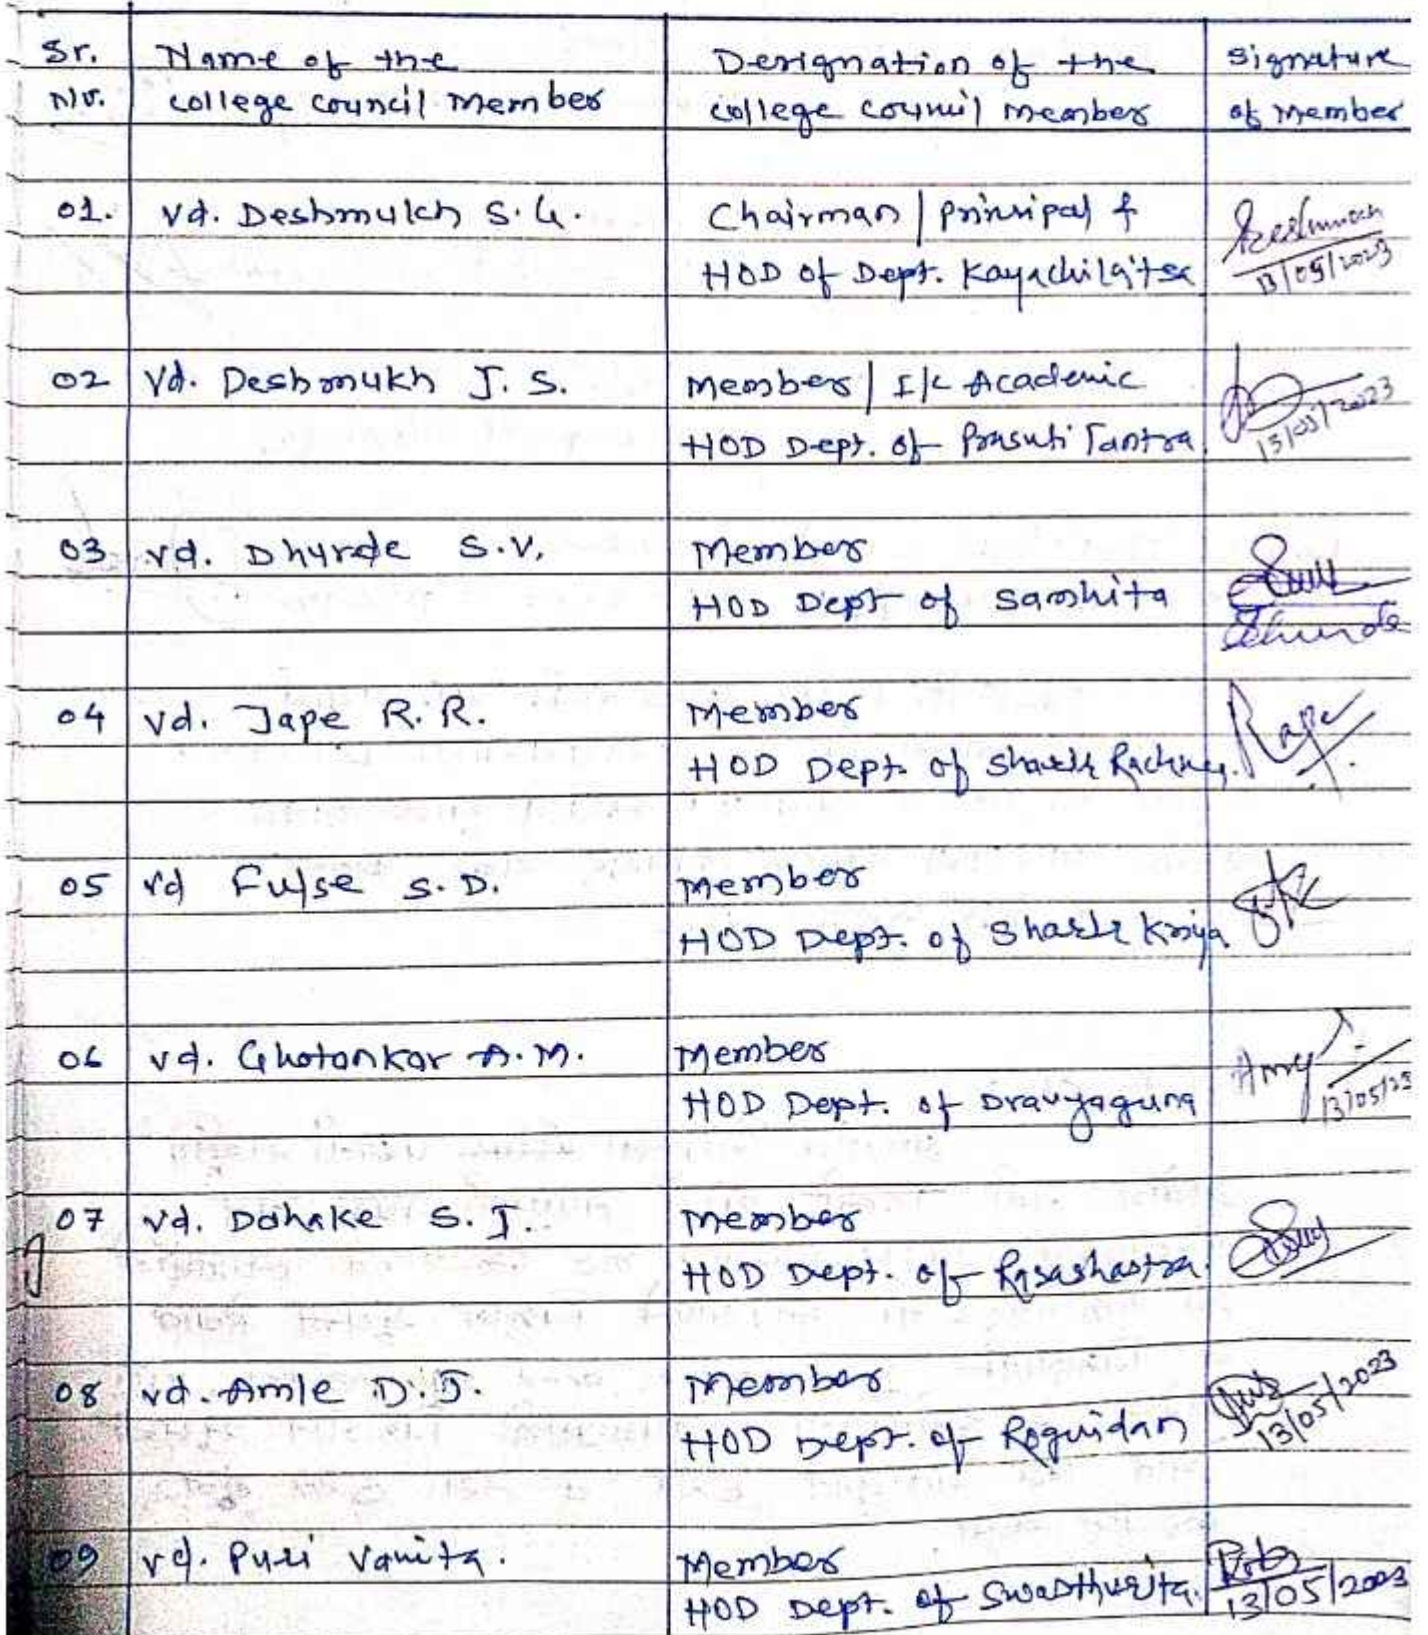 Sr. Name of the Designation of the Signature
No. college council member college council member of member
01. Vd. Deshmukh S. G. Chairman / Principal & Deshmukh
HOD of Dept. Kayachikitsa 13/05/2023
02 Vd. Deshmukh J. S. Member / I/C Academic
HOD Dept. of Prasuti Tantra 13/05/2023
03 vd. Dhurde S.V. Member
HOD Dept of Samhita
Dhurde
04 vd. Jape R. R. Member
HOD Dept. of Sharir Rachna.
05 vd Fulse S. D. Member
HOD Dept. of Sharir Kriya
06 vd. Ghotankar A. M. Member
HOD Dept. of Dravyaguna 13/05/23
07 vd. Dahake S. J. Member
HOD Dept. of Rasashastra.
08 vd. Amle D. J. Member
HOD Dept. of Rognidan 13/05/2023
09 vd. Puri Vanita. Member
HOD Dept. of Swasthvritta. 13/05/2023